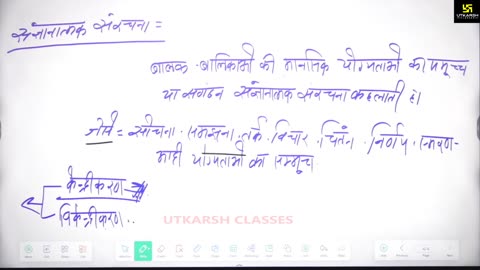 UTKARSH
संज्ञानात्मक संरचना =
बालक-बालिकाओं की मानसिक योग्यताओं का समुच्चय
या संगठन संज्ञानात्मक संरचना कहलाती है।
जैसे = सोचना. समझना. तर्क. विचार. चिंतन. निर्णय. स्मरण-
योग्यताओं का
केन्द्रीकरण
विकेन्द्रीकरण..
UTKARSH CLASSES